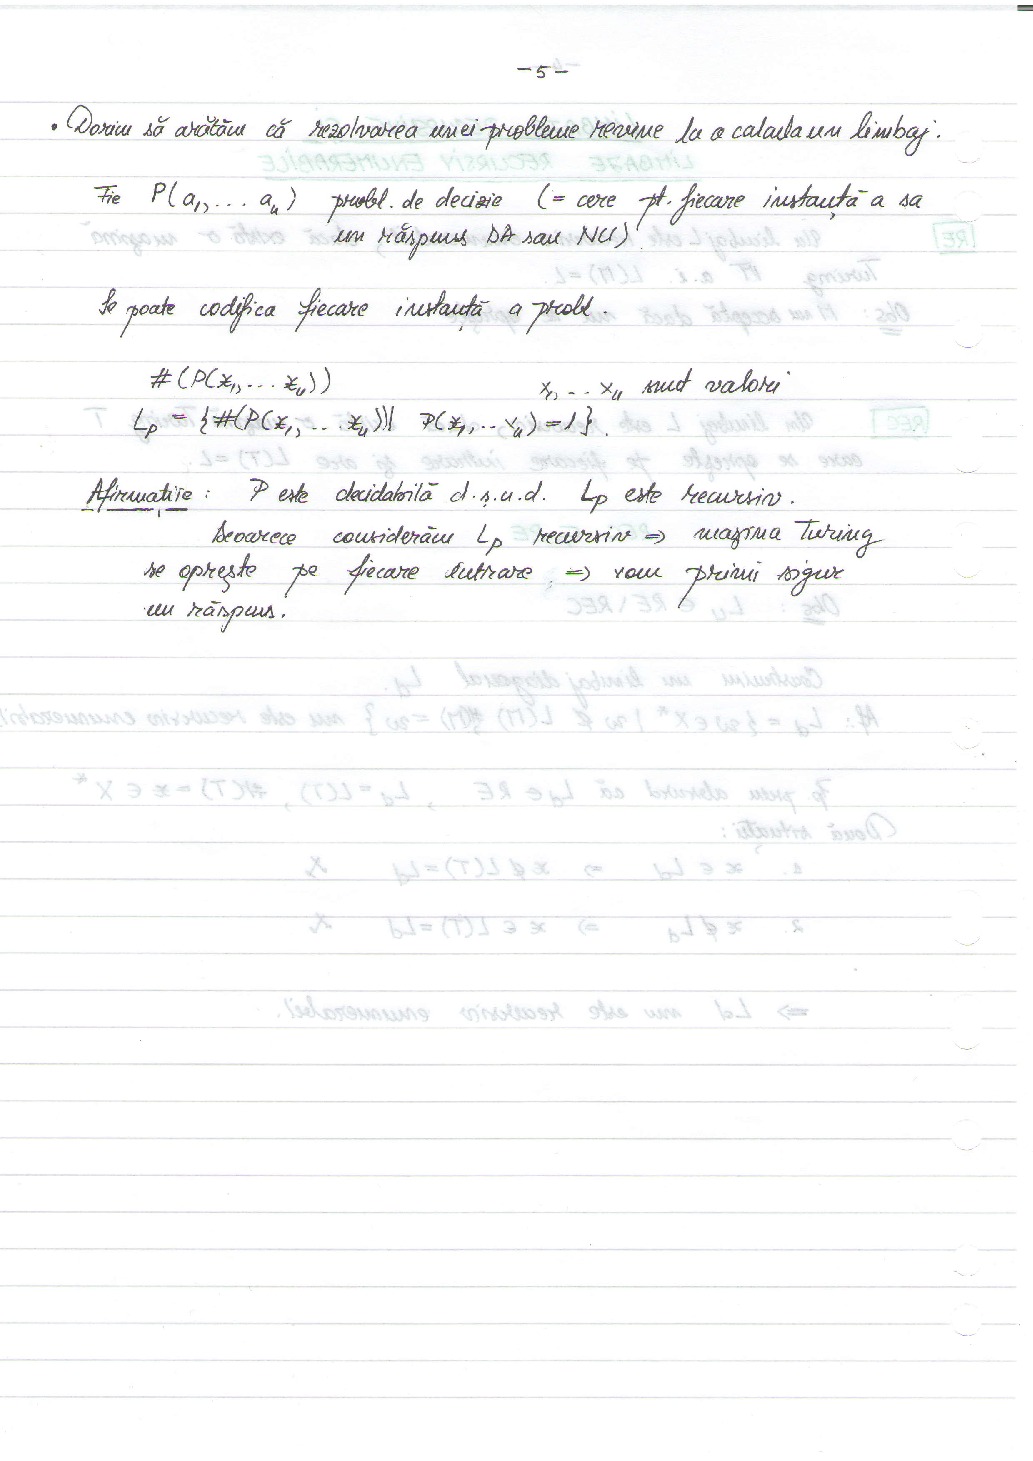 -5-
• Dorim să arătăm că rezolvarea unei probleme revine la a calcula un limbaj.
Fie P(a₁, ... aₙ) probl. de decizie (= cere pt. fiecare instanță a sa
un răspuns DA sau NU)
Se poate codifica fiecare instanță a probl.
#(P(x₁, ... xₙ)) x₁ ... xₙ sunt valori
Lₚ = {#(P(x₁, ... xₙ)) | P(x₁, ... xₙ) = 1}.
Afirmație: P este decidabilă d.ș.n.d. Lₚ este recursiv.
Deoarece considerăm Lₚ recursiv => mașina Turing
se oprește pe fiecare intrare, => vom primi sigur
un răspuns.